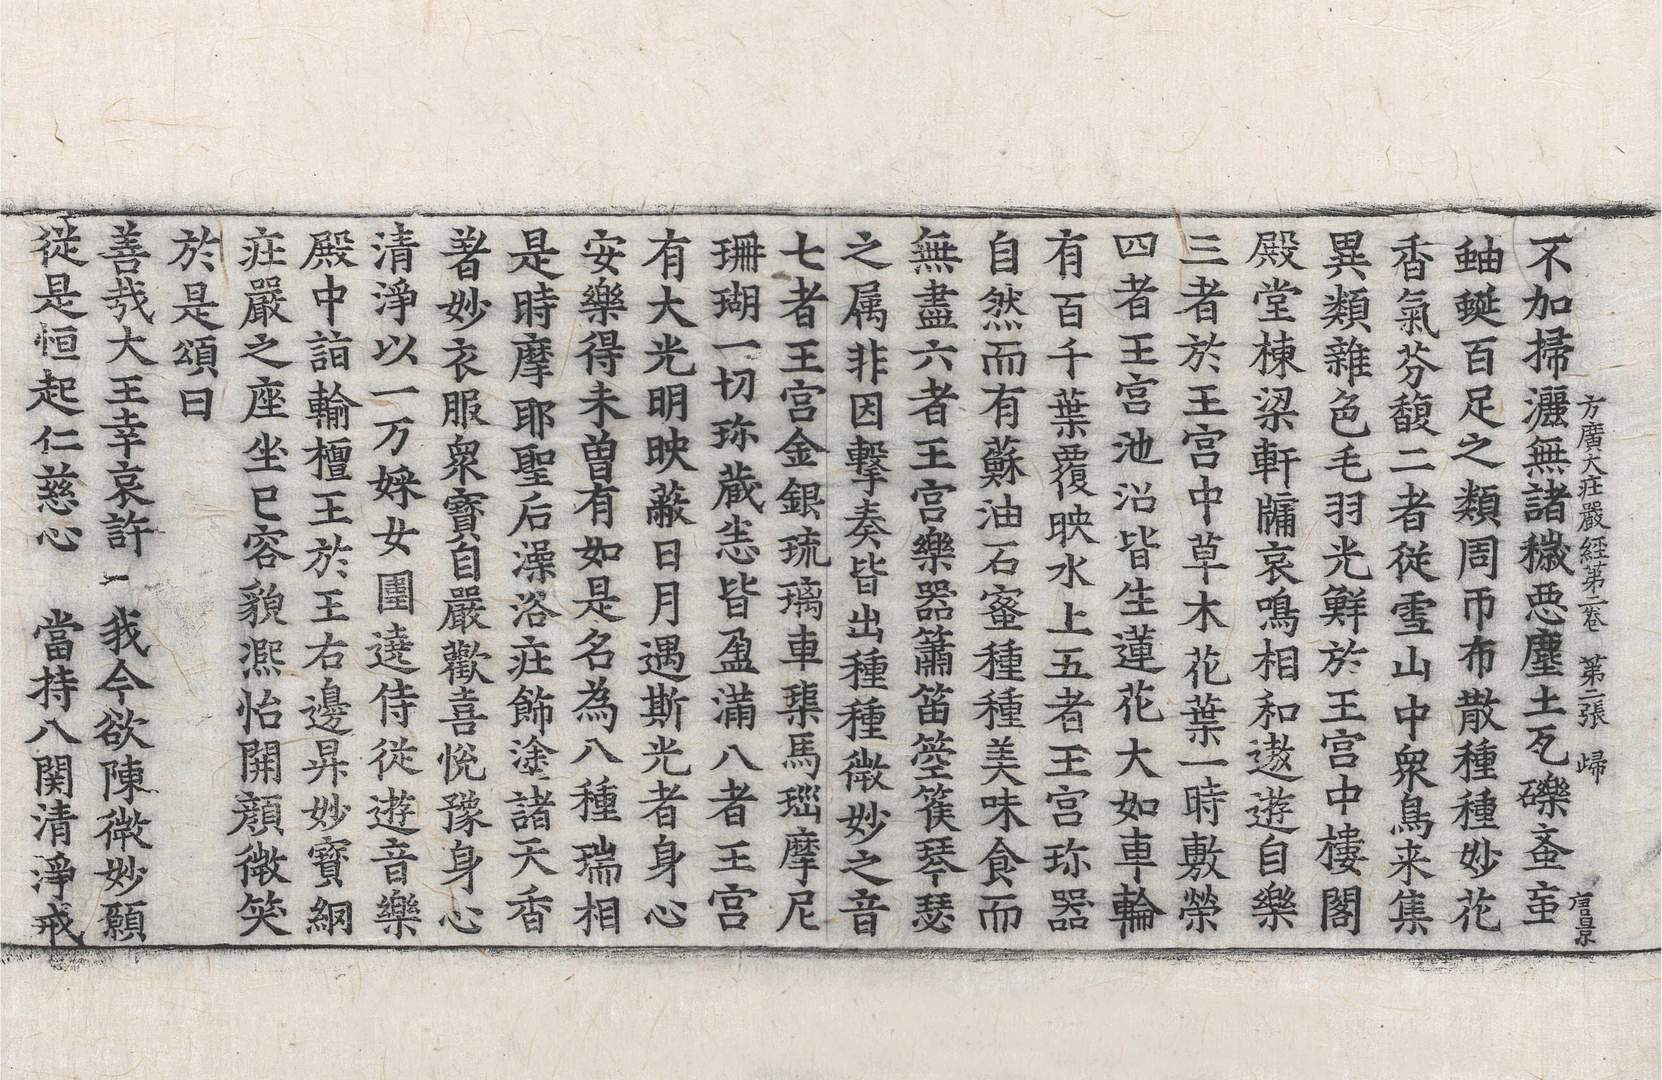 方廣大莊嚴經第二卷 第二張 歸 唐景
不加掃灑無諸穢惡塵土瓦礫蚉䖟
蚰蜒百足之類周帀布散種種妙花
香氣芬馥二者從雪山中衆鳥来集
異類雜色毛羽光鮮於王宮中樓閣
殿堂棟梁軒牖哀鳴相和遨遊自樂
三者於王宮中草木花葉一時敷榮
四者王宮池沼皆生蓮花大如車輪
有百千葉覆映水上五者王宮珎器
自然而有蘇油石蜜種種美味食而
無盡六者王宮樂器簫笛箜篌琴瑟
之属非因擊奏皆出種種微妙之音
七者王宮金銀琉璃車𤦲馬瑙摩尼
珊瑚一切珎蔵悉皆盈滿八者王宮
有大光明映蔽日月遇斯光者身心
安樂得未曽有如是名為八種瑞相
是時摩耶聖后澡浴莊飾塗諸天香
著妙衣服衆寶自嚴歡喜悅豫身心
清淨以一万婇女圍遶侍從遊音樂
殿中詣輸檀王於王右邊昇妙寶網
莊嚴之座坐已容貌凞怡開顔微笑
於是頌曰
善哉大王幸哀許 我今欲陳微妙願
從是恒起仁慈心 當持八関清淨戒